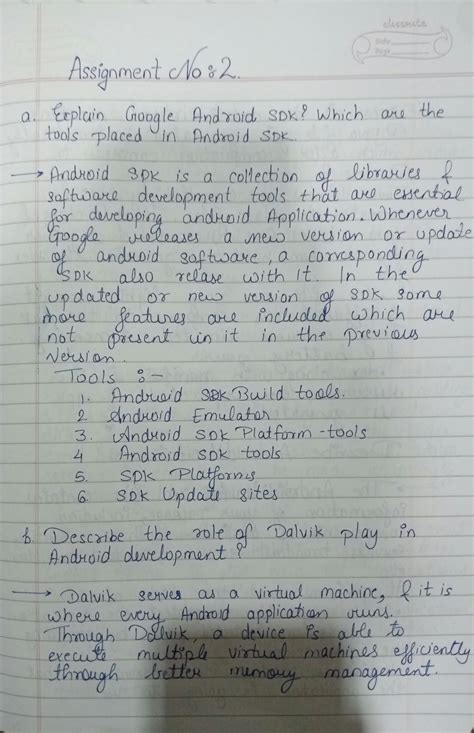 classmate
Date
Page
Assignment No : 2.
a. Explain Google Android SDK? Which are the
tools placed in Android SDK.
→ Android SDK is a collection of libraries &
software development tools that are essential
for developing android Application. Whenever
Google releases a new version or update
of android software, a corresponding
SDK also relase with it. In the
updated or new version of SDK some
more features are included which are
not present in it in the previous
version.
Tools :-
1. Android SDK Build tools.
2 Android Emulator
3. Android SDK Platform-tools
4 Android SDK tools
5. SDK Platforms
6 SDK Update sites
b. Describe the role of Dalvik play in
Android development?
→ Dalvik serves as a virtual machine, & it is
where every Android application runs.
Through Dalvik, a device is able to
execute multiple virtual machines efficiently
through better memory management.